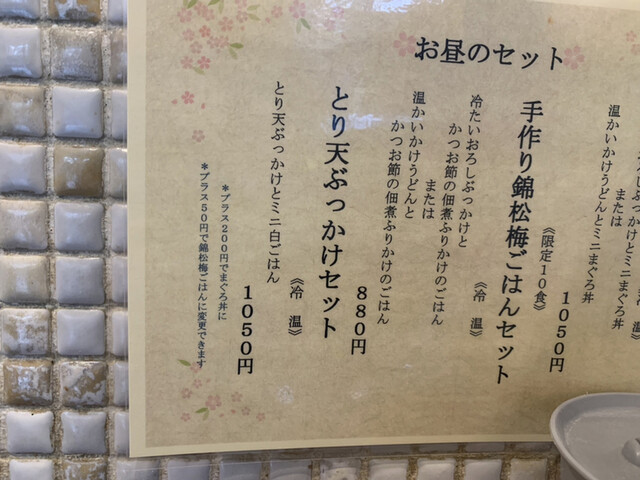 お昼のセット
ろしぶっかけとミニまぐろ丼
または
温かいかけうどんとミニまぐろ丼
温》
1050円
手作り錦松梅ごはんセット
《限定10食》
冷たいおろしぶっかけと
かつお節の佃煮ふりかけのごはん
または
温かいかけうどんと
かつお節の佃煮ふりかけのごはん
《冷 温》
880円
とり天ぶっかけセット
とり天ぶっかけとミニ白ごはん
《冷 温》
1050円
*プラス200円でまぐろ丼に
*プラス50円で錦松梅ごはんに変更できます